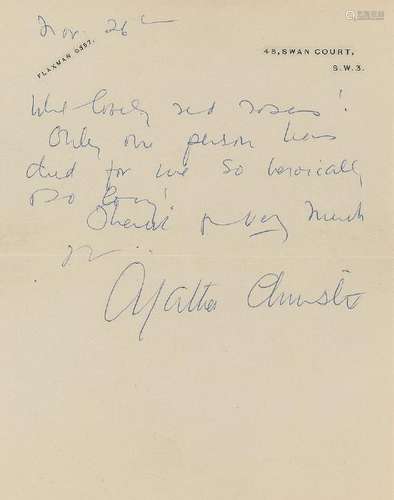 Nov. 26th
FLAXMAN 0587.
48, SWAN COURT,
S.W.3.
lovely red roses!
Only one person has
died for me so heroically
so
Thank you very much
Agatha Christie